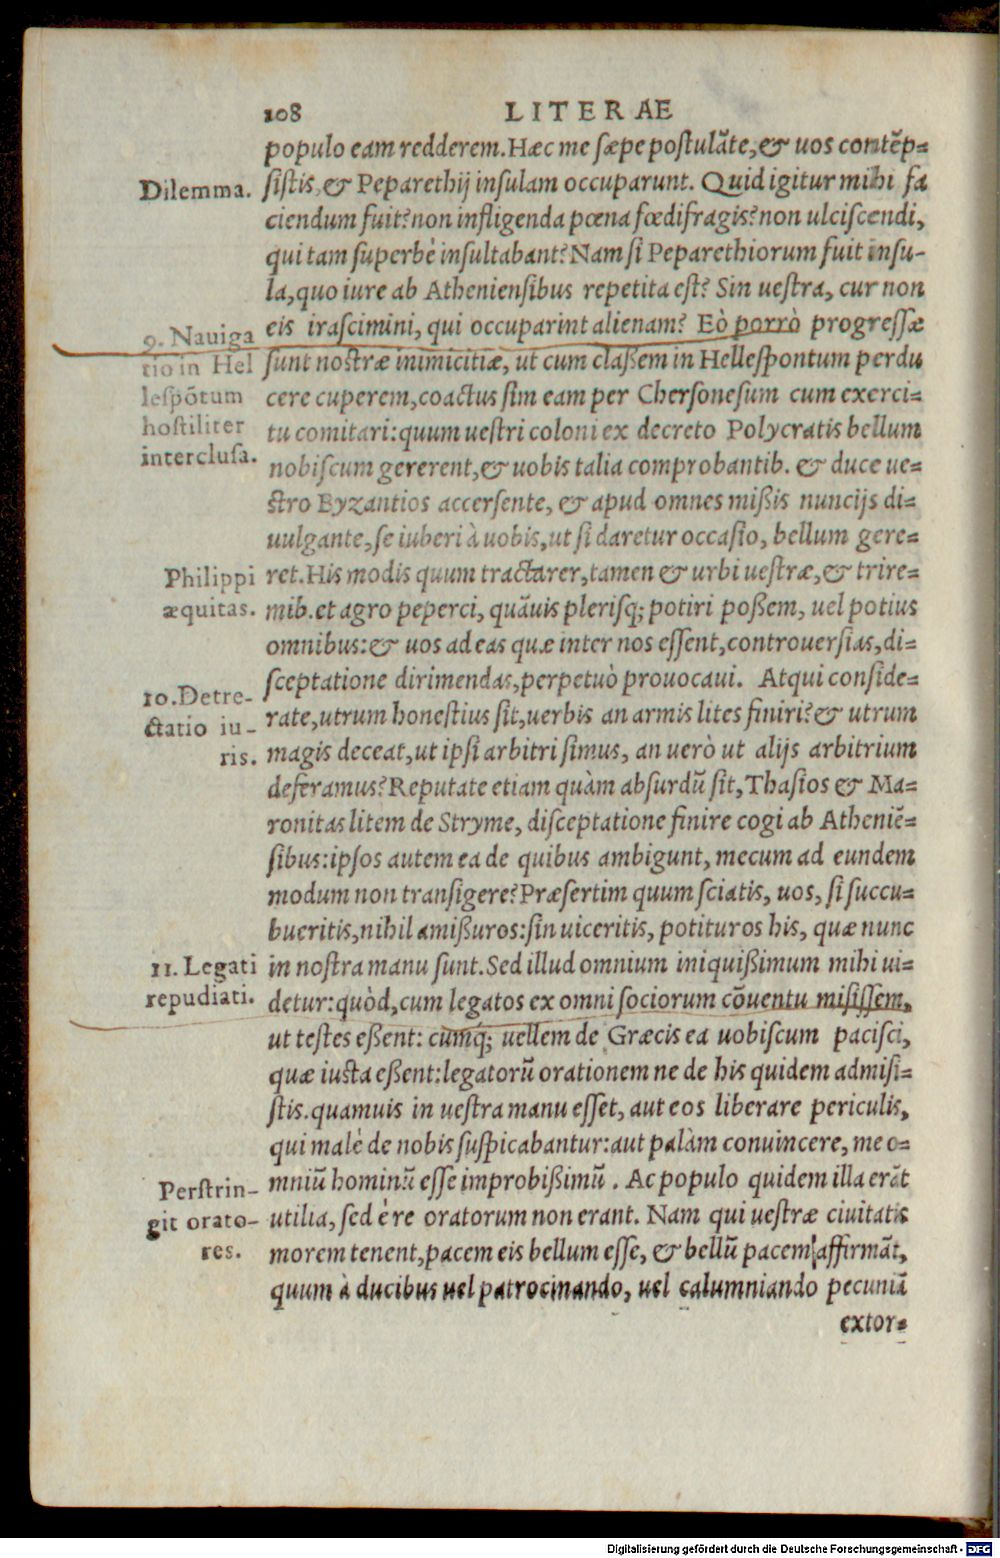 108 LITERAE
populo eam redderem. Hæc me sæpe postulāte, & uos contēp=
Dilemma.
sistis, & Peparethij insulam occuparunt. Quid igitur mihi fa
ciendum fuit? non infligenda pœna fœdifragis? non ulciscendi,
qui tam superbè insultabant? Nam si Peparethiorum fuit insu-
la, quo iure ab Atheniensibus repetita est? Sin uestra, cur non
eis irascimini, qui occuparint alienam? Eò porrò progressæ
9. Nauiga
tio in Hel
lespōtum
hostiliter
interclusa.
sunt nostræ inimicitiæ, ut cum claßem in Hellespontum perdu
cere cuperem, coactus sim eam per Chersonesum cum exerci=
tu comitari: quum uestri coloni ex decreto Polycratis bellum
nobiscum gererent, & uobis talia comprobantib. & duce ue=
stro Byzantios accersente, & apud omnes mißis nuncijs di=
uulgante, se iuberi à uobis, ut si daretur occasio, bellum gere=
Philippi
æquitas.
ret. His modis quum tractarer, tamen & urbi uestræ, & trire=
mib. et agro peperci, quāuis plerisq; potiri poßem, uel potius
omnibus: & uos ad eas quæ inter nos essent, controuersias, di=
sceptatione dirimendas, perpetuò prouocaui. Atqui conside=
10. Detre-
ctatio iu-
ris.
rate, utrum honestius sit, uerbis an armis lites finiri? & utrum
magis deceat, ut ipsi arbitri simus, an uerò ut alijs arbitrium
deferamus? Reputate etiam quàm absurdū sit, Thasios & Ma=
ronitas litem de Stryme, disceptatione finire cogi ab Atheniē=
sibus: ipsos autem ea de quibus ambigunt, mecum ad eundem
modum non transigere? Præsertim quum sciatis, uos, si succu=
bueritis, nihil amißuros: sin uiceritis, potituros his, quæ nunc
11. Legati
repudiati.
in nostra manu sunt. Sed illud omnium iniquißimum mihi ui=
detur: quòd, cum legatos ex omni sociorum cōuentu misissem,
ut testes eßent: cumq́; uellem de Græcis ea uobiscum pacisci,
quæ iusta eßent: legatorū orationem ne de his quidem admisi=
stis. quamuis in uestra manu esset, aut eos liberare periculis,
qui malè de nobis suspicabantur: aut palàm conuincere, me o=
Perstrin-
git orato-
res.
mniū hominū esse improbißimū. Ac populo quidem illa erāt
utilia, sed è re oratorum non erant. Nam qui uestræ ciuitatis
morem tenent, pacem eis bellum esse, & bellū pacem affirmāt,
quum à ducibus uel patrocinando, uel calumniando pecuniā
extor=
Digitalisierung gefördert durch die Deutsche Forschungsgemeinschaft - DFG